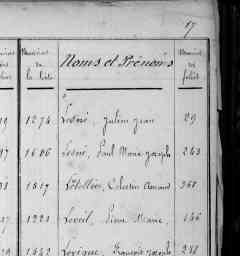 17
Numéros de la liste Noms et Prénoms Numéros des folios
1274 Losné, Julien Jean 29
1686 Losné, Paul Marie Joseph 243
1817 Lotellier, Célestin Amand 368
1221 Loreil, Pierre Marie 146
1442 Lorique, François Joseph 218